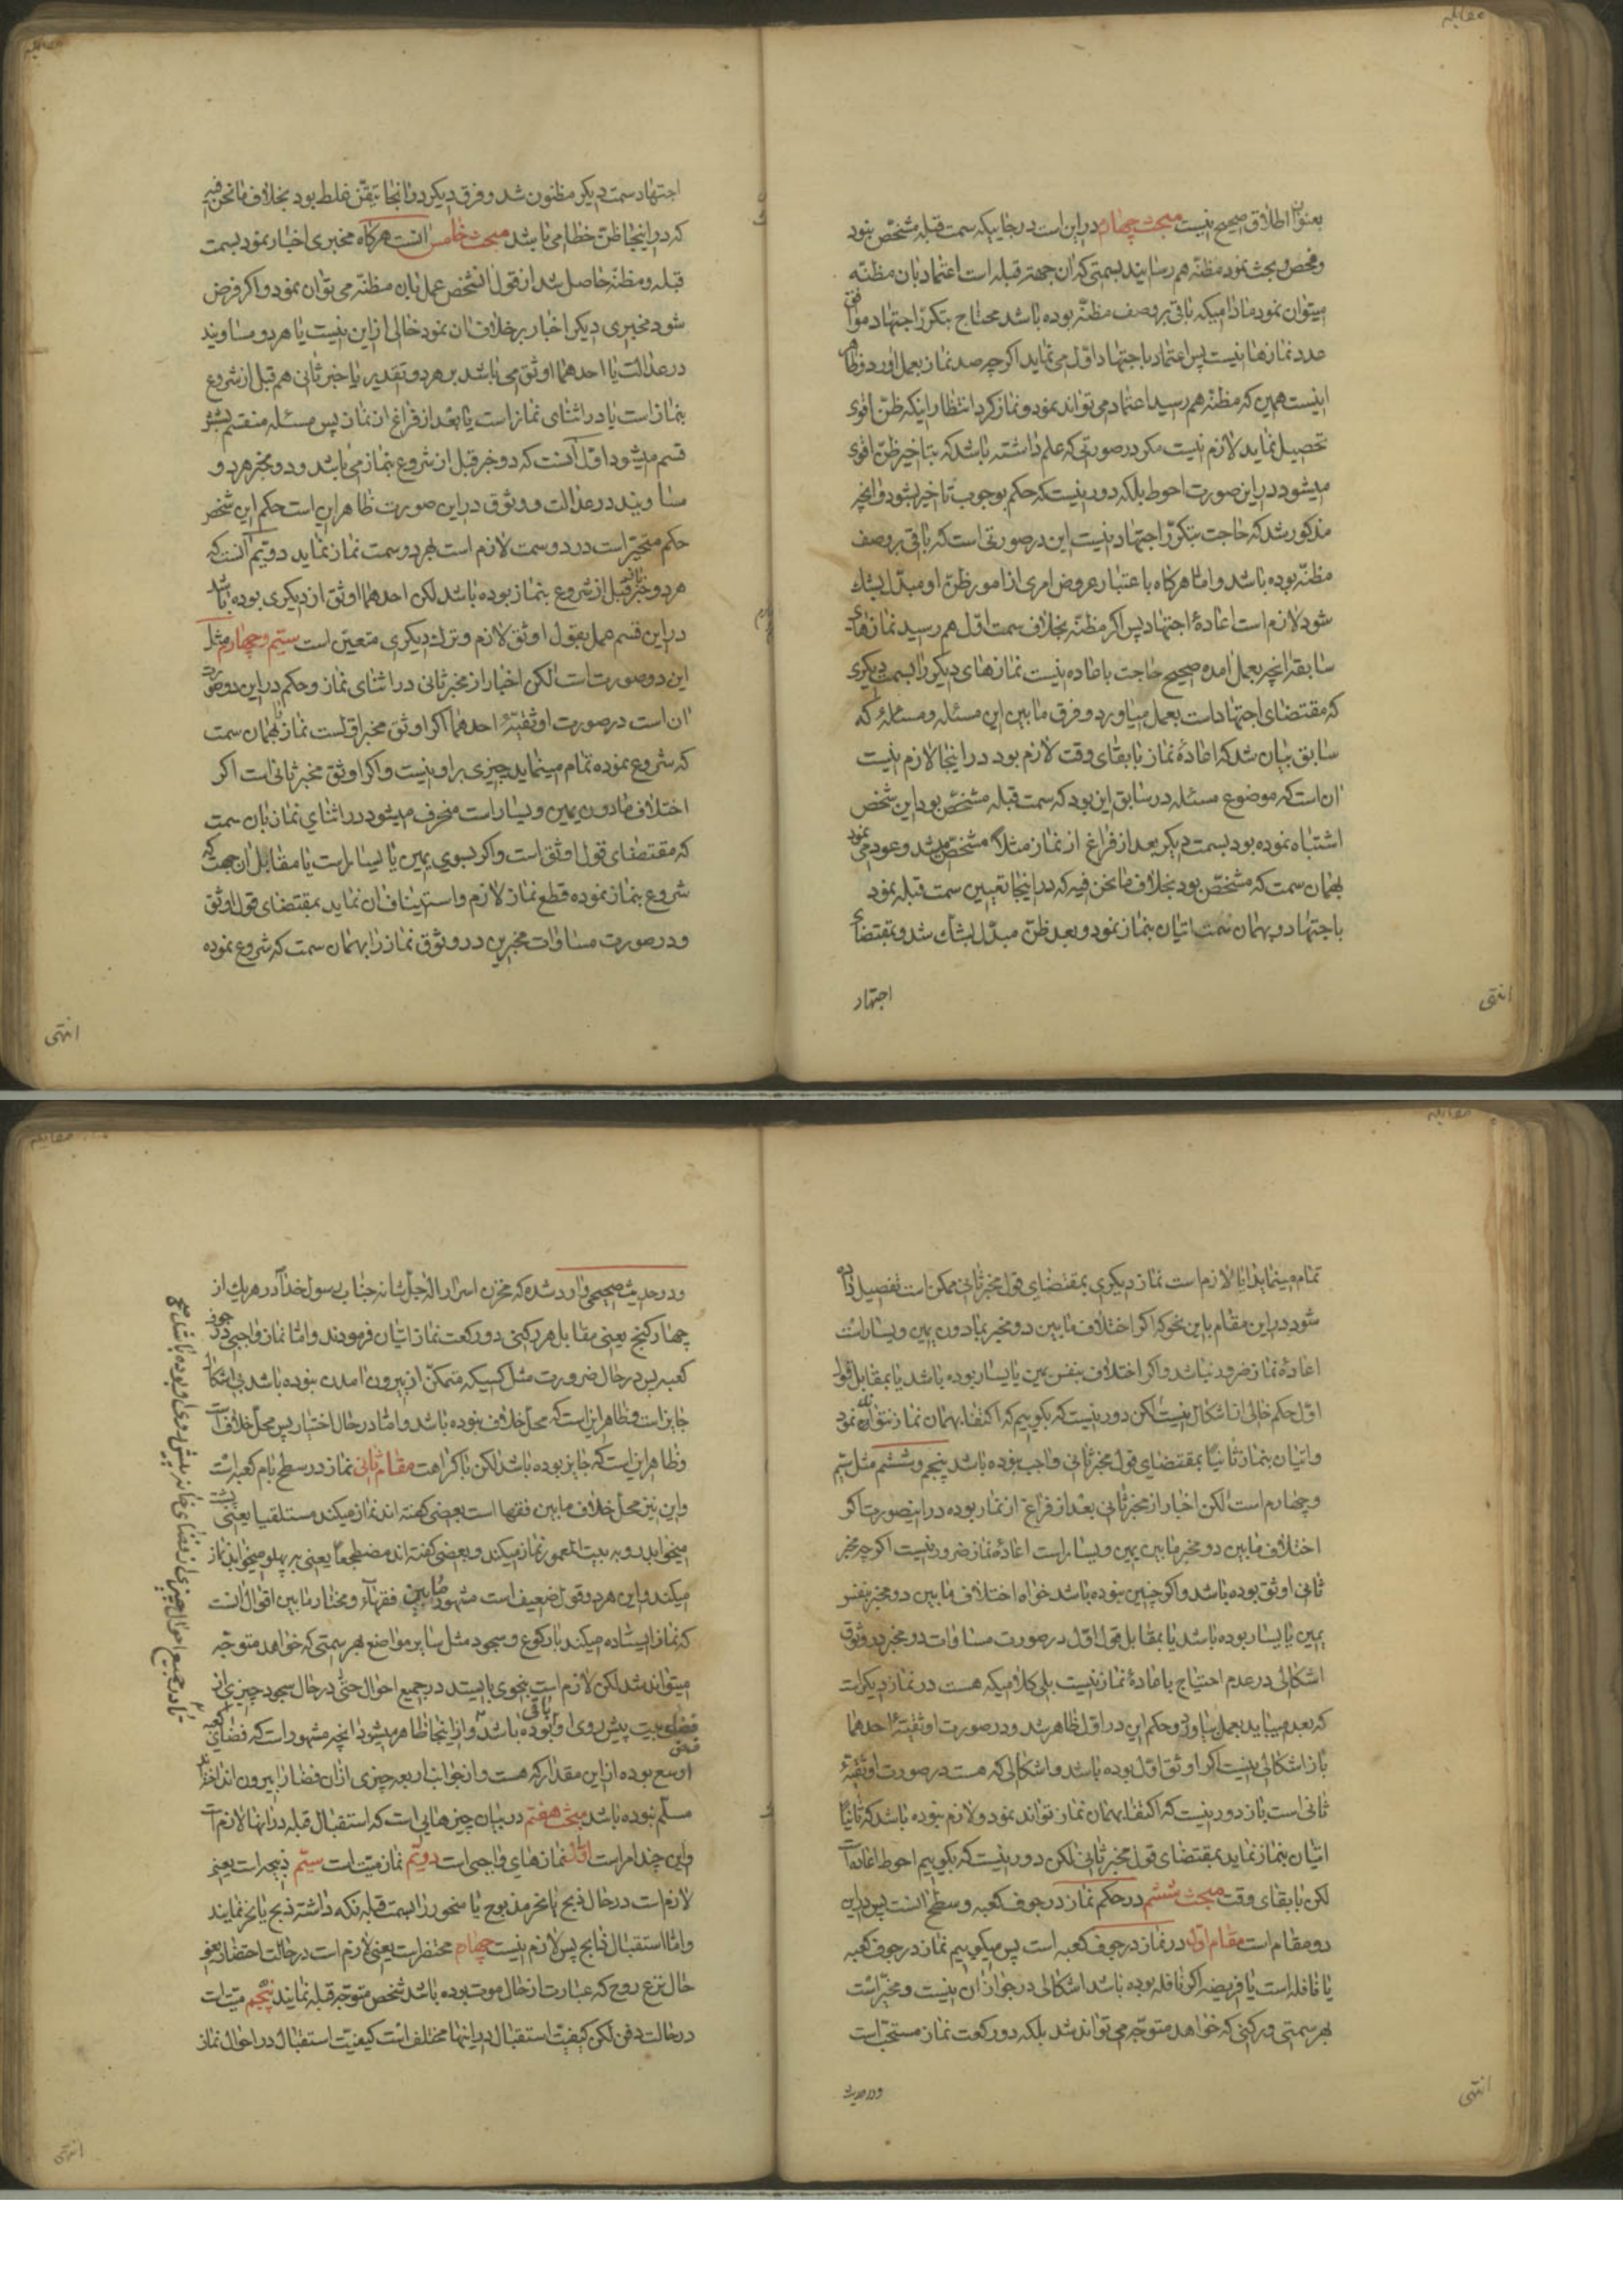 مقابله
بعنوان اطلاق صحیح نیست مبحث چهارم در این است در جاییکه سمت قبله مشخص نبود
و فحص و بحث نمود مظنه هم رسانید بسمتی که ان جهة قبله است اعتماد بان مظنه
میتوان نمود مادامیکه باقی بر وصف مظنه بوده باشد محتاج بتکرر اجتهاد موافق
عدد نمازها نیست پس اعتماد باجتهاد اول می نماید اگر چه صد نماز بعمل اورد و ظاهر
اینست همین که مظنه هم رسید اعتماد می تواند نمود و نماز کرد انتظار اینکه ظن اقوی
تحصیل نماید لازم نیست مکر در صورتی که علم داشته باشد که بتاخیر ظن اقوی
میشود در این صورت احوط بلکه دور نیست که حکم بوجوب تاخیر بشود و انچه
مذکور شد که حاجت بتکرر اجتهاد نیست این در صورتی است که باقی بر وصف
مظنه بوده باشد و اما هرکاه باعتبار عروض امری از امور ظن او مبدل بشك
شود لازم است اعادهٔ اجتهاد پس اکر مظنه بخلاف سمت اول هم رسید نمازهای
سابقه انچه بعمل امده صحیح حاجت باعاده نیست نمازهای دیکر را بسمت دیکری
که مقتضای اجتهاد است بعمل میاورد و فرق ما بین این مسئله و مسئلهٔ که
سابق بیان شد که اعادهٔ نماز با بقای وقت لازم بود در اینجا لازم نیست
ان است که موضوع مسئله در سابق این بود که سمت قبله مشخص بود این شخص
اشتباه نموده بود بسمت دیکر بعد از فراغ از نماز مثلا مشخص میشد و عود می نمود
بهمان سمت که مشخص بود بخلاف ما نحن فیه که در اینجا تعیین سمت قبله نمود
باجتهاد و بهمان سمت اتیان بنماز نمود و بعد ظن مبدل بشك شد و بمقتضای
اجتهاد
انتهی
مقابله
اجتهاد سمت دیکر مظنون شد و فرق دیکر در انجا تیقن غلط بود بخلاف ما نحن فیه
که در اینجا ظن خطا می باشد مبحث خامس انست هرکاه مخبری اخبار نمود بسمت
قبله و مظنه حاصل شد از قول انشخص عمل بان مظنه می توان نمود و اکر فرض
شود مخبری دیکر اخبار بر خلاف ان نمود خالی از این نیست یا هر دو مساویند
در عدالت یا احدهما اوثق می باشد بر هر دو تقدیر یا خبر ثانی هم قبل از شروع
بنماز است یا در اثنای نماز است یا بعد از فراغ از نماز پس مسئله منقسم بشش
قسم میشود اول انست که دو خبر قبل از شروع بنماز می باشد و دو مخبر هر دو
مساویند در عدالت و وثوق در این صورت ظاهر این است حکم این شخص
حکم متحیر است در دو سمت لازم است بهر دو سمت نماز نماید دویم انست که
هر دو خبر قبل از شروع بنماز بوده باشد لکن احدهما اوثق از دیکری بوده باشد
در این قسم عمل بقول اوثق لازم و ترك دیکری متعین است سیم و چهارم مثل
این دو صورت است لکن اخبار از مخبر ثانی در اثنای نماز و حکم در این دو صورت
ان است در صورت اوثقیة احدهما اکر اوثق مخبر اولست نماز بهمان سمت
که شروع نموده تمام مینماید چیزی بر او نیست و اکر اوثق مخبر ثانی است اکر
اختلاف مادون یمین و یسار است منحرف میشود در اثنای نماز بان سمت
که مقتضای قول اوثق است و اکر بسوی یمین یا یسار است یا مقابل ان جهت که
شروع بنماز نموده قطع نماز لازم و استیناف ان نماید بمقتضای قول اوثق
و در صورت مساوات مخبرین در وثوق نماز را بهمان سمت که شروع نموده
انتهی
مقابله
تمام مینماید ایا لازم است نماز دیکری بمقتضای قول مخبر ثانی ممکن است تفصیل داده
شود در این مقام باین نحو که اکر اختلاف ما بین دو مخبر بمادون یمین و یسار است
اعادهٔ نماز ضرور نباشد و اکر اختلاف بنفس یمین یا یسار بوده باشد یا بمقابل قول
اول حکم خالی از اشکال نیست لکن دور نیست که بکوییم که اکتفا بهمان نماز نتوان نمود
و اتیان بنماز ثانیا بمقتضای قول مخبر ثانی واجب بوده باشد پنجم و ششم مثل سیم
و چهارم است لکن اخبار از مخبر ثانی بعد از فراغ از نماز بوده در اینصورت اکر
اختلاف مابین دو مخبر ما بین یمین و یسار است اعادهٔ نماز ضرور نیست اکر چه مخبر
ثانی اوثق بوده باشد و اکر چنین نبوده باشد خواه اختلاف ما بین دو مخبر بنفس
یمین یا یسار بوده باشد یا بمقابل قول اول در صورت مساوات دو مخبر در وثوق
اشکالی در عدم احتیاج باعادهٔ نماز نیست بلی کلامیکه هست در نماز دیکر است
که بعد میباید بعمل بیاورد و حکم این در اول ظاهر شد و در صورت اوثقیة احدهما
باز اشکالی نیست اکر اوثق اول بوده باشد و اشکالی که هست در صورت اوثقیة
ثانی است باز دور نیست که اکتفا بهمان نماز تواند نمود و لازم نبوده باشد که ثانیا
اتیان بنماز نماید بمقتضای قول مخبر ثانی لکن دور نیست که بکوییم احوط اعاده است
لکن با بقای وقت مبحث ششم در حکم نماز در جوف کعبه و سطح انست پس در این
دو مقام است مقام اول در نماز در جوف کعبه است پس میکوییم نماز در جوف کعبه
یا نافله است یا فریضه اکر نافله بوده باشد اشکالی در جواز ان نیست و مخیر است
بهر سمتی و رکنی که خواهد متوجه می تواند شد بلکه دو رکعت نماز مستحب است
و در حدیث
انتهی
مقابله
و در حدیث صحیحی وارد شده که مخزن اسرار اله جل شانه جناب رسول خدا در هر یك از
چهار کنج یعنی مقابل هر رکنی دو رکعت نماز اتیان فرمودند و اما نماز واجبی در جوف
کعبه پس در حال ضرورت مثل کسیکه متمکن از بیرون امدن نبوده باشد بی اشکال
جایز است و ظاهر این است که محل خلاف نبوده باشد و اما در حال اختیار پس محل خلاف است
و ظاهر این است که جایز بوده باشد لکن با کراهت مقام ثانی نماز در سطح بام کعبه است
و این نیز محل خلاف ما بین فقها است بعضی کفته اند نماز میکند مستلقیا یعنی پشت
میخوابد رو به بیت المعمور نماز میکند و بعضی کفته اند مضطجعا یعنی بر پهلو میخوابد نماز
میکند و این هر دو قول ضعیف است مشهور مابین فقهاء و مختار ما بین اقوال انست
که نماز ایستاده میکند با رکوع و سجود مثل سایر مواضع بهر سمتی که خواهد متوجه
میتواند شد لکن لازم است بنحوی بایستد در جمیع احوال حتی در حال سجود چیزی از
فضای بیت پیش روی او باقی بوده باشد و از اینجا ظاهر میشود انچه مشهور است که فضای کعبه
اوسع بوده از این مقدار که هست و از جوانب اربعه چیزی از ان فضا را بیرون انداخته اند
مسلم نبوده باشد مبحث هفتم در بیان چیزهایی است که استقبال قبله در انها لازم است
و این چند امر است اول نمازهای واجبی است دویم نماز میت است سیم ذبیحه است یعنی
لازم است در حال ذبح یا نحر مذبوح یا منحور را بسمت قبله نکه داشته ذبح یا نحر نمایند
و اما استقبال ذابح پس لازم نیست چهارم محتضر است یعنی لازم است در حالت احتضار یعنی
حال نزع روح که عبارت از حال موت بوده باشد شخص متوجه قبله نمایند پنجم میت است
در حالت دفن لکن کیفیت استقبال در اینها مختلف است کیفیت استقبال در احوال نماز
انتهی